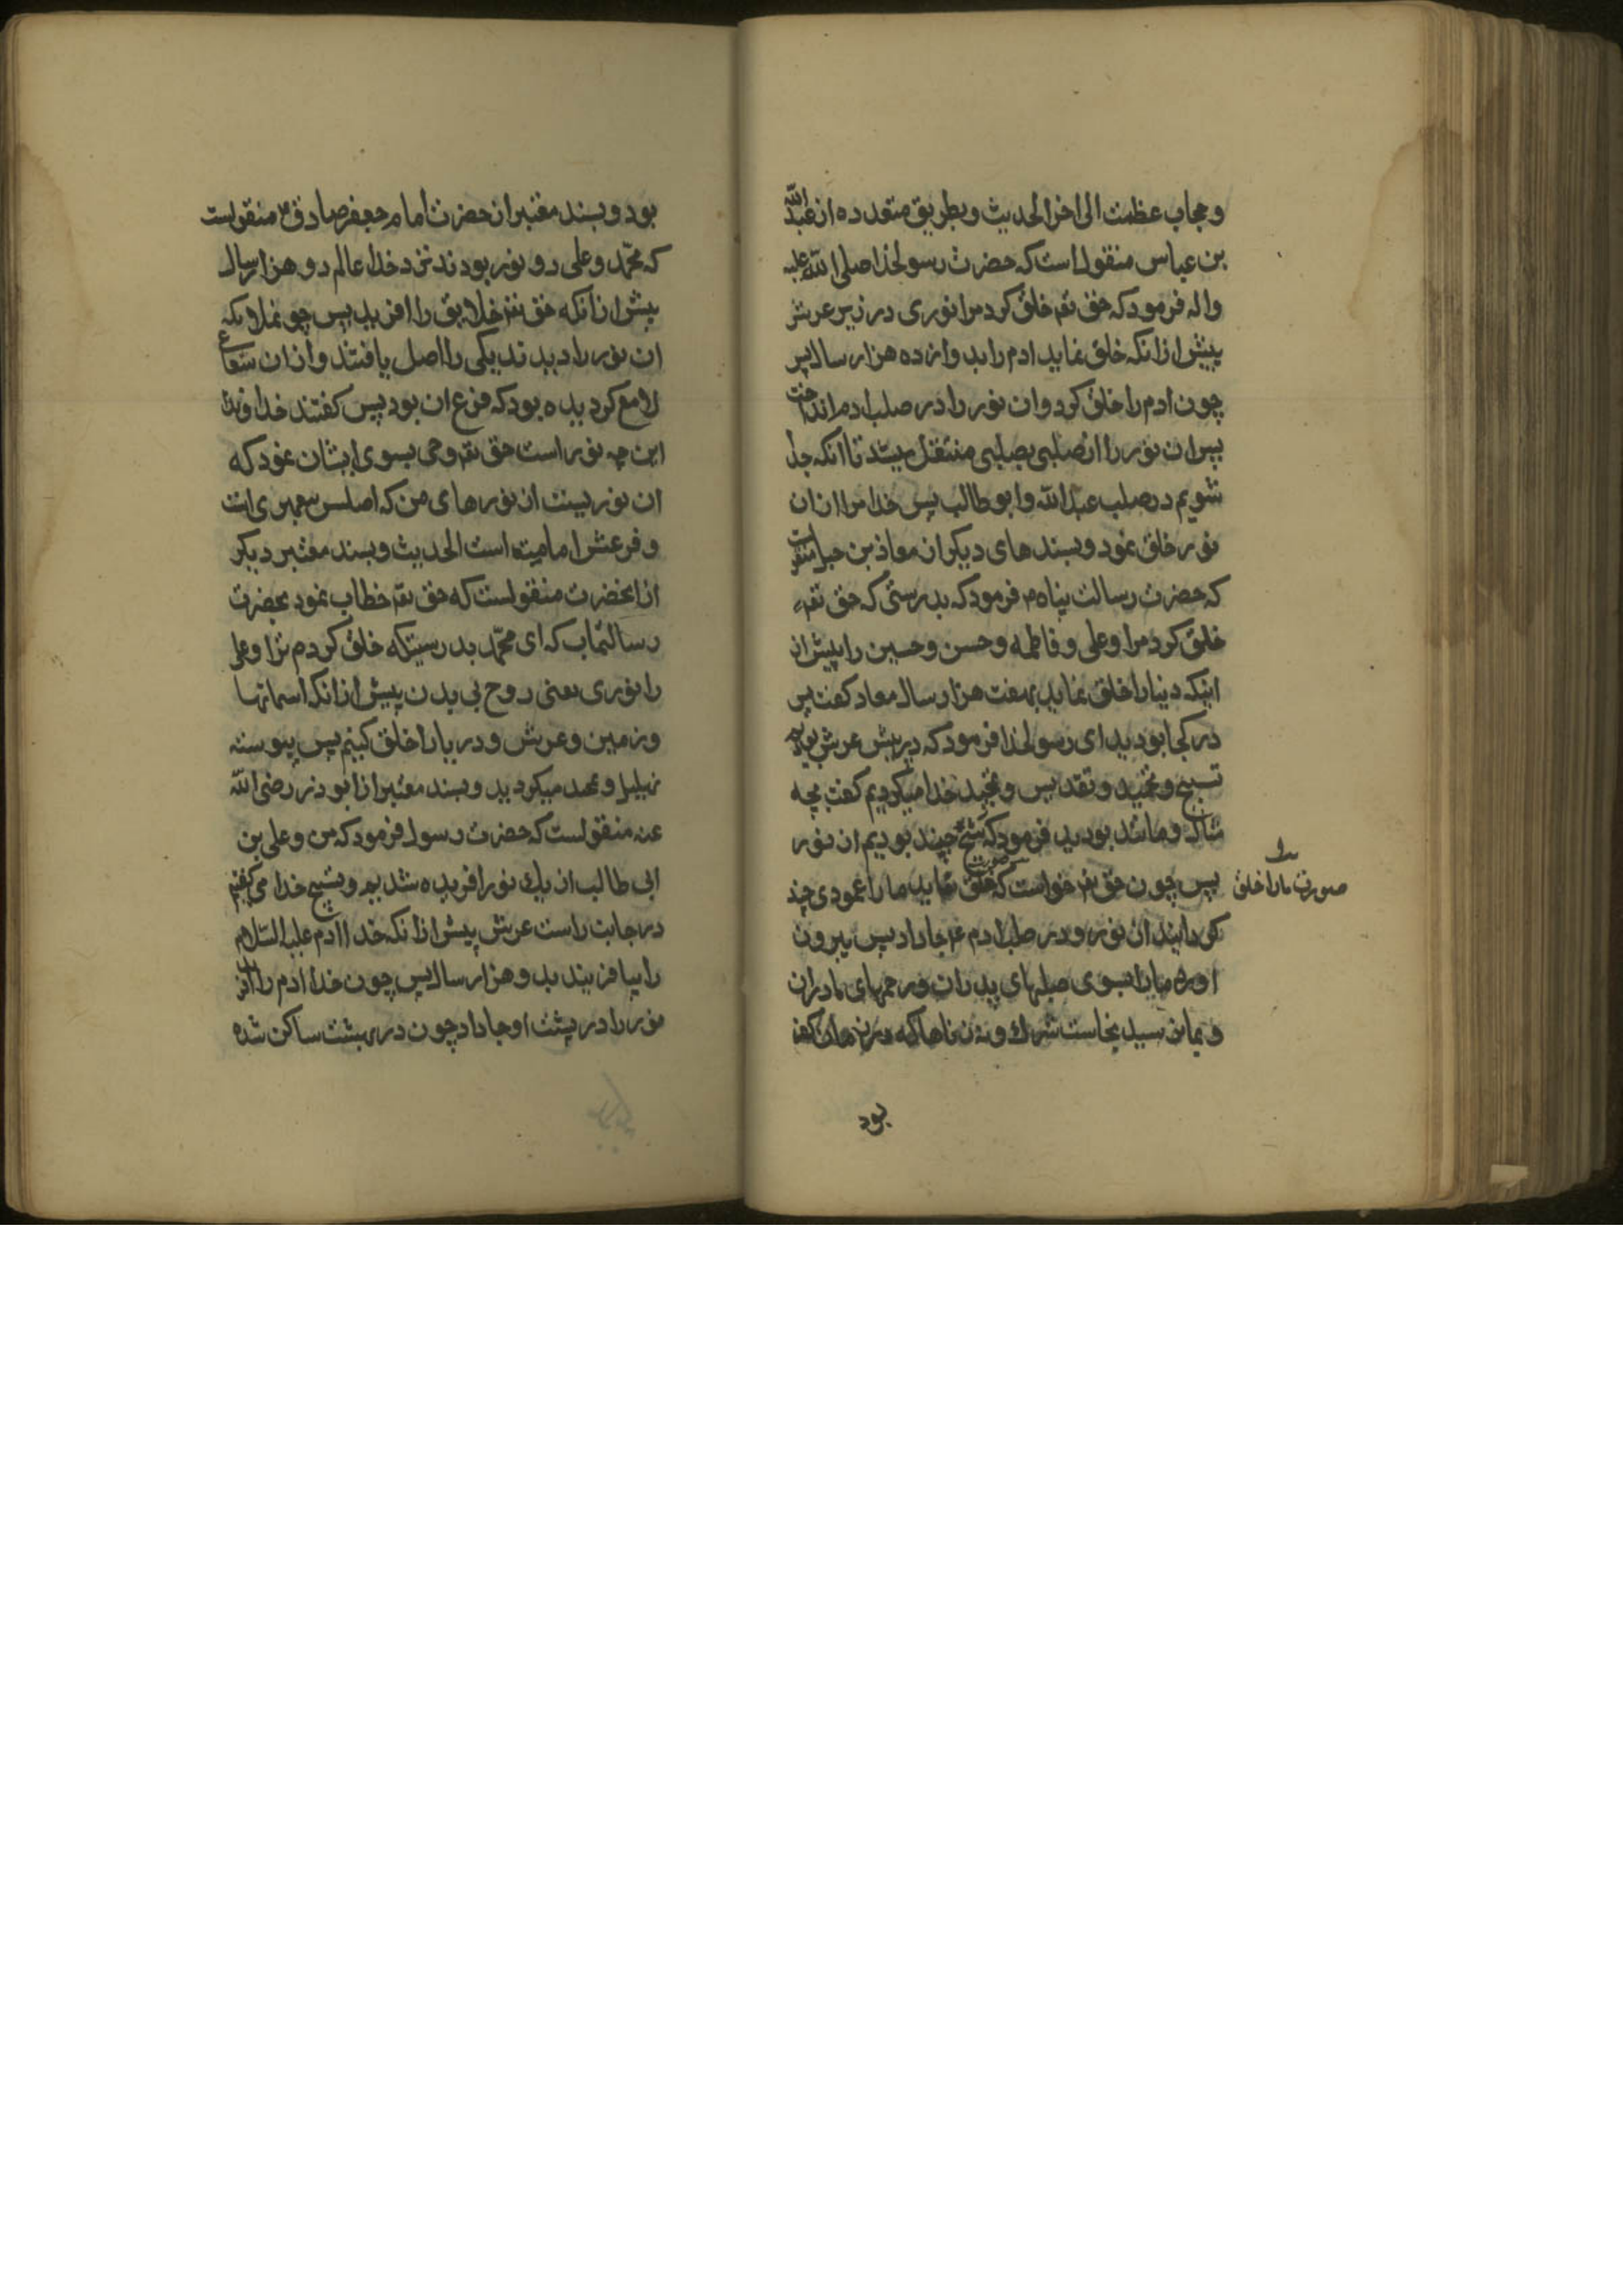 و حجاب عظمت الی اخر الحدیث و بطریق متعدده از عبد الله
بن عباس منقول است که حضرت رسولخدا صلی الله علیه
واله فرمود که حق تعـ خلق کرد مرا نوری در زیر عرش
پیش از انکه خلق نماید ادم را بدوازده هزار سال پس
چون ادم را خلق کرد وان نور را در صلب ادم انداخت
پس ان نور را از صلبی بصلبی منتقل میشد تا انکه جدا
شویم در صلب عبد الله وابو طالب پس خدا مرا از ان
نور خلق نمود و بسندهای دیکر از معاذ بن جبل منقولست
که حضرت رسالت پناه م فرمود که بدرستی که حق تعـ
خلق کرد مرا وعلی و فاطمه و حسن و حسین را پیش از
اینکه دنیا را خلق نماید بهفت هزار سال معاد کفت پس
در کجا بودید ای رسولخدا فرمود که در پیش عرش بودیم
تسبیح و تحمید و تقدیس و تمجید خدا میکردیم کفت بچه
مثال و مانند بودید فرمود که شبح چند بودیم از نور
پس چون حق تعـ خواست که خلق نماید ما را عمودی چند
صورت
صورت مارا خلق
کردانید از نور و در صلب ادم ع جا داد پس بیرون
اورد مارا بسوی صلبهای پدران و رحمهای مادران
و بما نرسید نجاست شرک و نه زناها که در زمان کفر
بود
بود و بسند معتبر از حضرت امام جعفر صادق ع منقولست
که محمّد و علی دو نور بودند نزد خدا عالم دو هزار سال
پیش از انکه حق تعـ خلایق را افرید پس چو نملائکه
ان نور را دیدند یکی را اصل یافتند و از ان شعاع
لامع کردیده بود که فرع ان بود پس کفتند خداوندا
این چه نور است حق تعـ وحی بسوی ایشان نمود که
ان نوریست از نورهای من که اصلس پیغمبری است
و فرعش امامیت است الحدیث و بسند معتبر دیکر
از انحضرت منقولست که حق تعـ خطاب نمود بحضرت
رسالتماب که ای محمّد بدرستیکه خلق کردم ترا وعلی
را نوری یعنی روح بی بدن پیش از انکه اسمانها
وزمین وعرش و دریا را خلق کنیم پس پیوسته
تهلیل و تمجید میکردید و بسند معتبر از ابوذر رضی الله
عنه منقولست که حضرت رسول فرمود که من وعلی بن
ابی طالب از یک نور افریده شدیم و تسبیح خدا می کفتیم
در جانب راست عرش پیش از انکه خدا ادم علیه السّلام
را بیافریند بدو هزار سال پس چون خدا ادم را ان
نور را در پشت او جا داد چون در بهشت ساکن شد